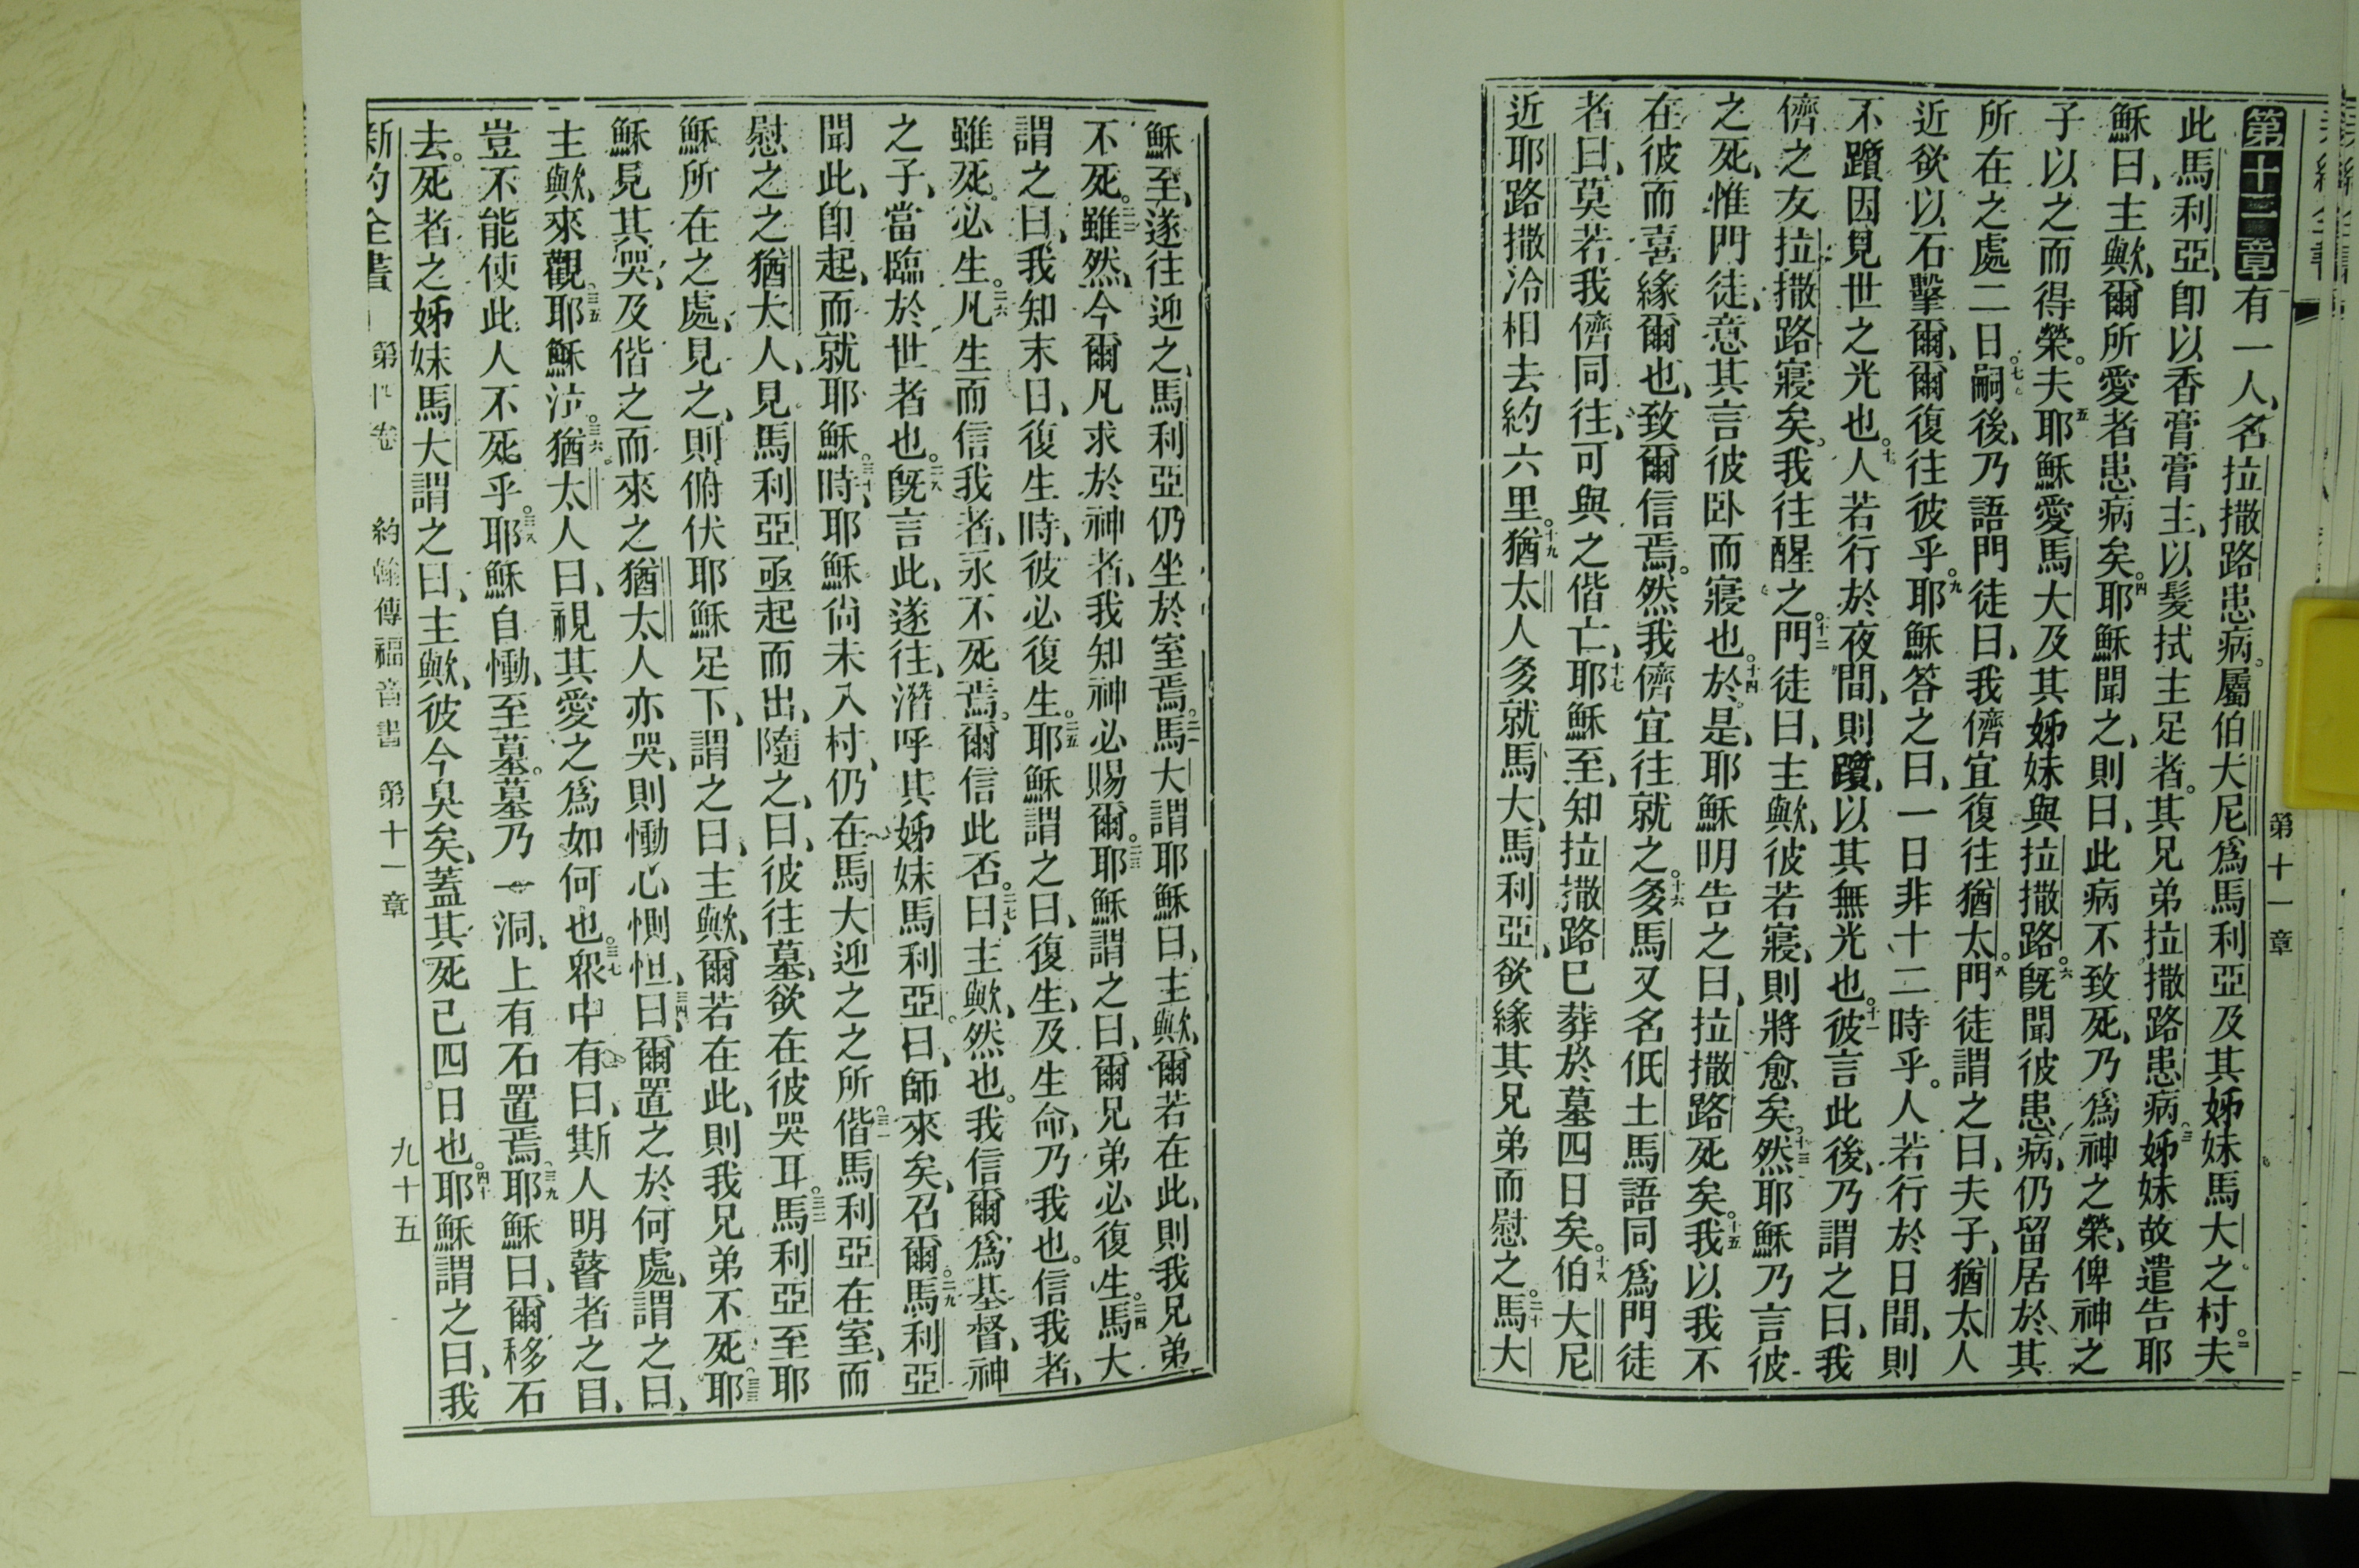 第十一章有一人、名拉撒路患病。屬伯大尼爲馬利亞及其姊妹馬大之村。二夫
此馬利亞、卽以香膏膏主、以髪拭主足者。其兄弟拉撒路患病。三姊妹故遣告耶
穌曰、主歟、爾所愛者患病矣。四耶穌聞之、則曰、此病不致死、乃爲神之榮、俾神之
子以之而得榮。五夫耶穌愛馬大及其姊妹與拉撒路。六旣聞彼患病、仍留居於其
所在之處二日。七嗣後、乃語門徒曰、我儕宜復往猶太。八門徒謂之曰、夫子、猶太人
近欲以石擊爾、爾復往彼乎。九耶穌答之曰、一日非十二時乎。人若行於日間、則
不躓因見世之光也。十人若行於夜間、則躓、以其無光也。十一彼言此後、乃謂之曰、我
儕之友拉撒路寢矣。我往醒之。十二門徒曰、主歟、彼若寢、則將愈矣。十三然耶穌乃言彼
之死、惟門徒、意其言彼卧而寢也。十四於是、耶穌明告之曰、拉撒路死矣。十五我以我不
在彼而喜緣爾也、致爾信焉。然我儕宜往就之。十六多馬又名低土馬語同爲門徒
者曰、莫若我儕同往、可與之偕亡。十七耶穌至、知拉撒路已葬於墓四日矣。十八伯大尼
近耶路撒冷相去約六里。十九猶太人多就馬大、馬利亞、欲緣其兄弟而慰之。二十馬大
第十一章
穌至、遂往迎之、馬利亞仍坐於室焉。二一馬大謂耶穌曰、主歟、爾若在此、則我兄弟
不死。二二雖然、今爾凡求於神者、我知神必賜爾。二三耶穌謂之曰、爾兄弟必復生。二四馬大
謂之曰、我知末日、復生時、彼必復生。二五耶穌謂之曰、復生、及生命、乃我也。信我者、
雖死。必生。二六凡生而信我者、永不死焉。爾信此否。二七曰、主歟、然也。我信爾爲基督、神
之子、當臨於世者也。二八旣言此、遂往、潛呼其姊妹馬利亞。曰、師來矣、召爾。二九馬利亞
聞此、卽起、而就耶穌。三十時、耶穌尙未入村、仍在馬大迎之之所。三一偕馬利亞在室、而
慰之之猶太人、見馬利亞亟起而出、隨之、曰、彼往墓、欲在彼哭耳。三二馬利亞至耶
穌所在之處、見之、則俯伏耶穌足下、謂之曰、主歟、爾若在此、則我兄弟不死。三三耶
穌見其哭、及偕之而來之猶太人亦哭、則慟心惻怛、三四曰、爾置之於何處、謂之曰、
主歟、來觀。三五耶穌泣。三六猶太人曰、視其愛之爲如何也。三七衆中有曰、斯人明瞽者之目、
豈不能使此人不死乎。三八耶穌自慟、至墓。墓乃一洞、上有石置焉。三九耶穌曰、爾移石
去。死者之姊妹馬大謂之曰、主歟、彼今臭矣、蓋其死已四日也。四十耶穌謂之曰、我
新約全書 第四卷 約翰傳福音書 第十一章 九十五